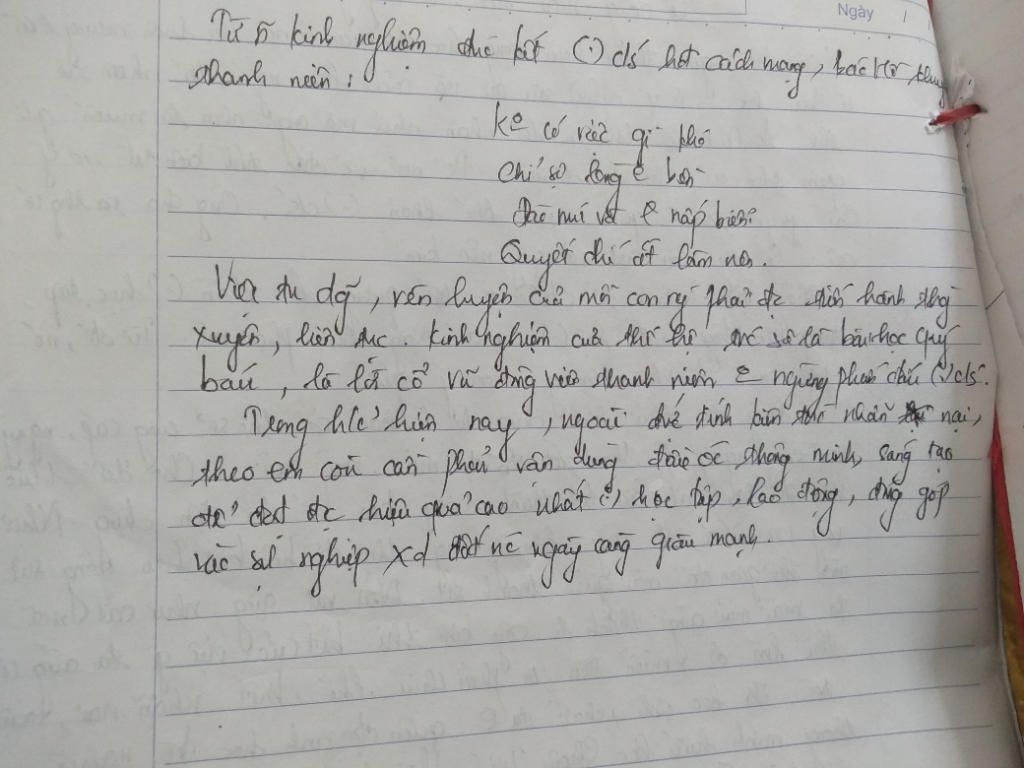 Ngày /
Từ kinh nghiệm đúc kết (.) c/s hđ cách mạng, bác Hồ
thanh niên:
ko có việc gì khó
Chỉ sợ lòng o bền
Đào núi và lấp biển
Quyết chí ắt làm nên.
Việc tu dg, rèn luyện của mỗi con ng phải đc tiến hành thg
xuyên, liên tục. Kinh nghiệm của là bài học quý
báu, là lời cổ vũ động viên thanh niên ngừng phấn đấu (.) c/s.
Trong h/c' hiện nay, ngoài tính nhẫn nại,
theo em còn cần phải vận dụng đầu óc thông minh, sáng tạo
để đạt đc hiệu quả cao nhất (.) học tập, lao động, đóng góp
vào sự nghiệp xd đất nc ngày càng giàu mạnh.